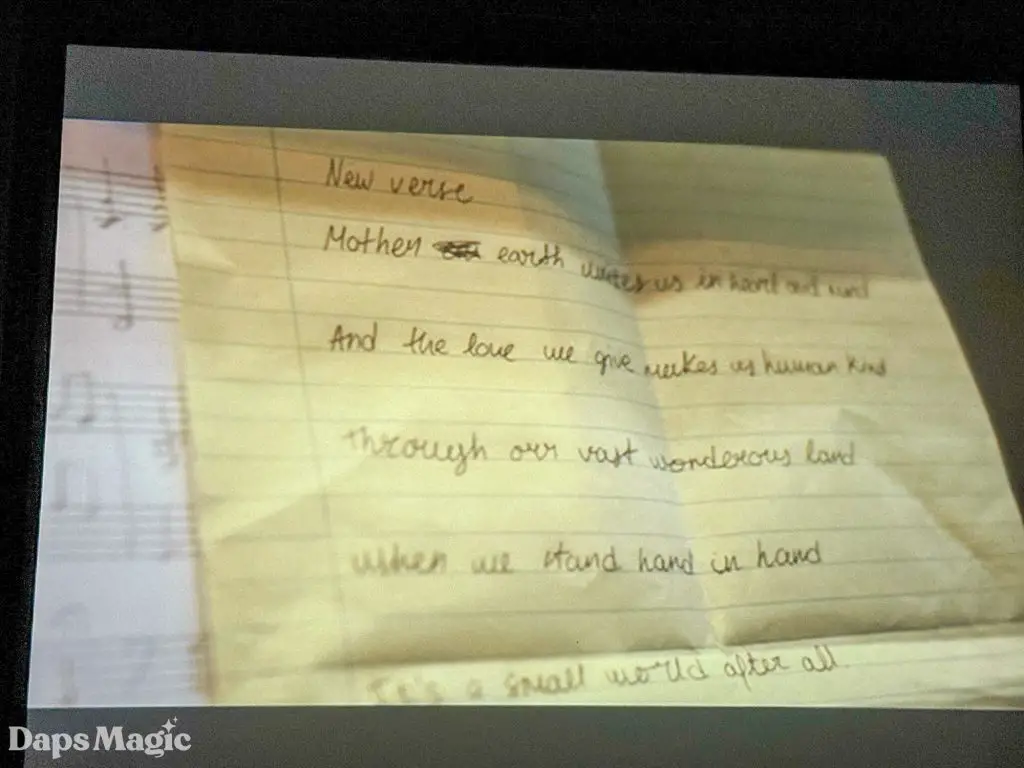 New verse
Mother earth unites us in heart and mind
And the love we give makes us human kind
through our vast wonderous land
when we stand hand in hand
It's a small world after all.
Daps Magic